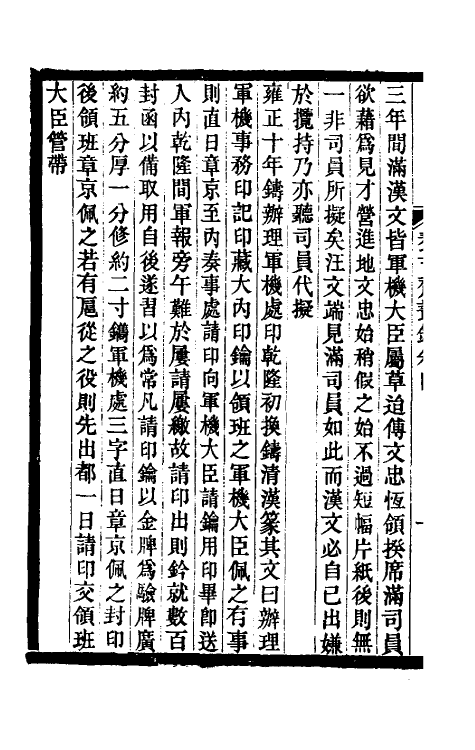 三年間滿漢文皆軍機大臣屬草迨傅文忠恆領揆席滿司員
欲藉爲見才營進地文忠始稍假之始不過短幅片紙後則無
一非司員所擬矣汪文端見滿司員如此而漢文必自己出嫌
於攬持乃亦聽司員代擬
雍正十年鑄辦理軍機處印乾隆初換鑄清漢篆其文曰辦理
軍機事務印記印藏大內印鑰以領班之軍機大臣佩之有事
則直日章京至內奏事處請印向軍機大臣請鑰用印畢卽送
入內乾隆間軍報旁午難於屢請屢繳故請印出則鈐就數百
封函以備取用自後遂習以爲常凡請印鑰以金牌爲驗牌廣
約五分厚一分修約二寸鐫軍機處三字直日章京佩之封印
後領班章京佩之若有扈從之役則先出都一日請印交領班
大臣管帶